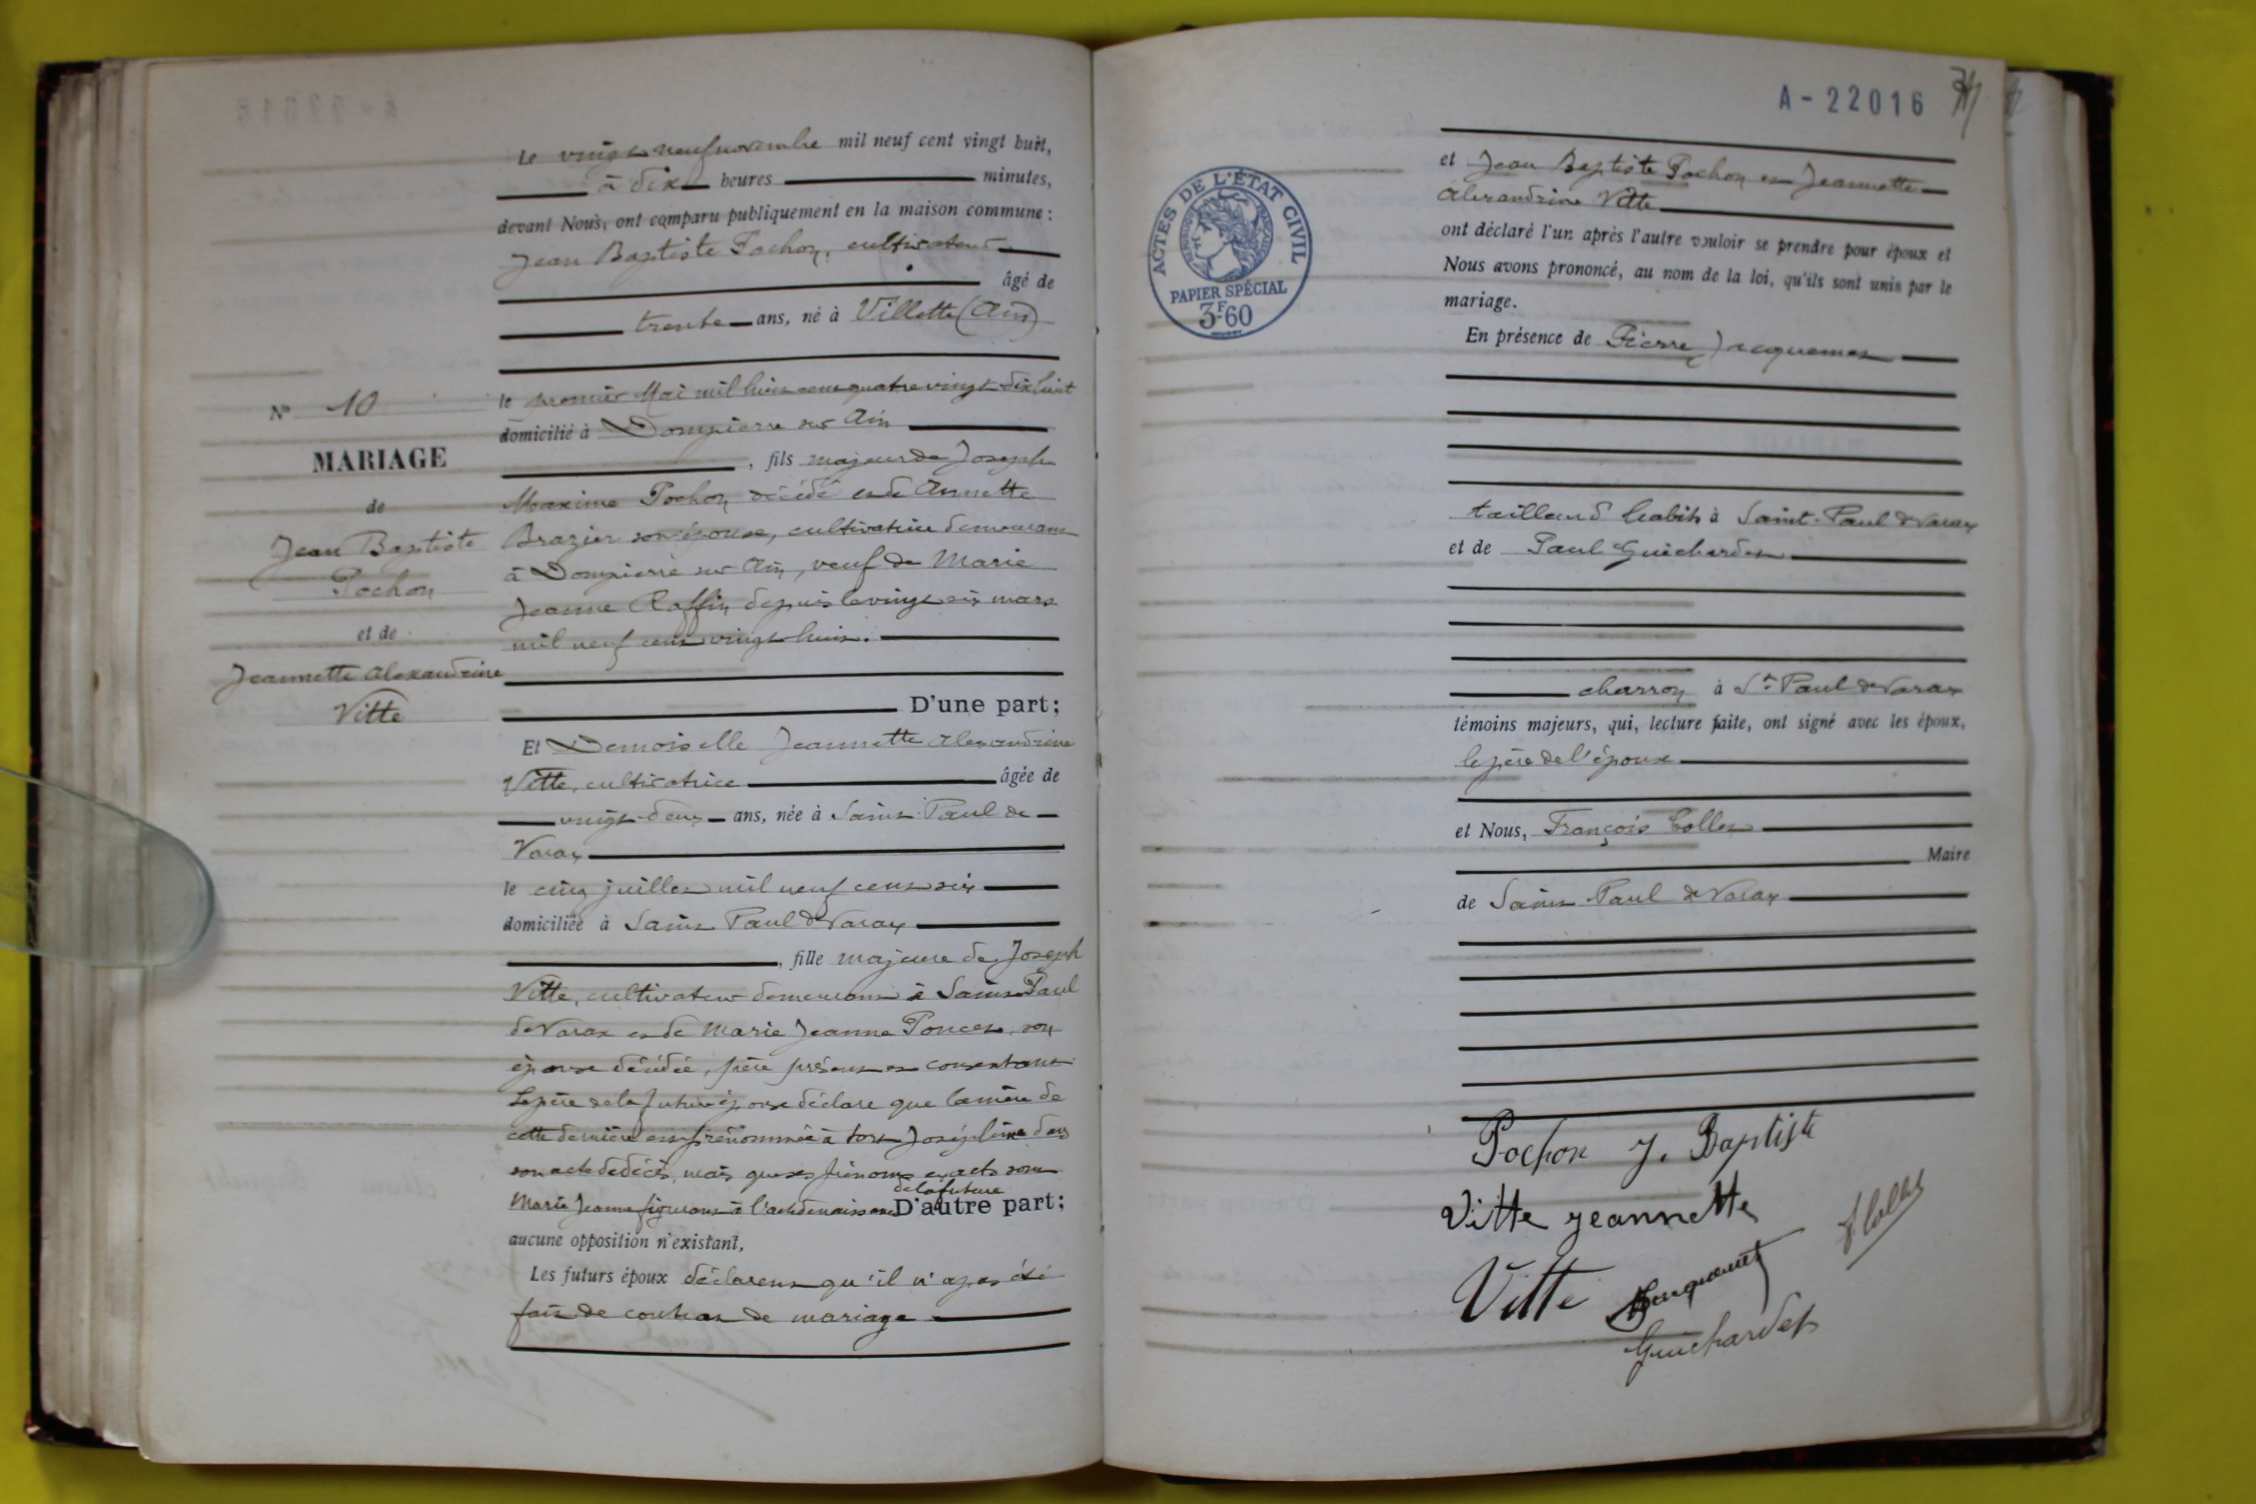 Le vingt neuf novembre mil neuf cent vingt huit,
à dix heures minutes,
devant Nous, ont comparu publiquement en la maison commune :
Jean Baptiste Pochon, cultivateur
âgé de
trente ans, né à Villette (Ain)
N° 10
MARIAGE
de
Jean Baptiste
Pochon
et de
Jeannette Alexandrine
Vitte
le premier Mai mil huit cent quatre vingt dix huit
domicilié à Dompierre sur Ain
, fils majeur de Joseph
Maxime Pochon décédé et de Annette
Brazier son épouse, cultivatrice demeurant
à Dompierre sur Ain, veuf de Marie
Jeanne Raffin depuis le vingt six mars
mil neuf cent vingt huit.
D'une part;
Et Demoiselle Jeannette Alexandrine
Vitte, cultivatrice âgée de
vingt-deux ans, née à Saint Paul de
Varax
le cinq juillet mil neuf cent six
domiciliée à Saint Paul de Varax
, fille majeure de Joseph
Vitte, cultivateur demeurant à Saint Paul
de Varax et de Marie Jeanne Poncet son
épouse décédée, père présent et consentant
Le père de la future épouse déclare que la mère de
cette dernière est prénommée à tort Joséphine dans
son acte de décès, mais que ses prénoms exacts sont
de la future
Marie Jeanne figurant à l'acte de naissance D'autre part;
aucune opposition n'existant,
Les futurs époux déclarent qu'il n'a pas été
fait de contrat de mariage
A-22016
ACTES DE L'ÉTAT CIVIL
PAPIER SPÉCIAL
3F.60
et Jean Baptiste Pochon et Jeannette
Alexandrine Vitte
ont déclaré l'un après l'autre vouloir se prendre pour époux et
Nous avons prononcé, au nom de la loi, qu'ils sont unis par le
mariage.
En présence de Pierre Jacquemet
tailleur d'habits à Saint-Paul de Varax
et de Paul Guichardet
charron à St Paul de Varax
témoins majeurs, qui, lecture faite, ont signé avec les époux,
le père de l'épouse
et Nous, François Collet
Maire
de Saint Paul de Varax
Pochon J. Baptiste
Vitte Jeannette
Vitte Jacquemet f Collet
Guichardet